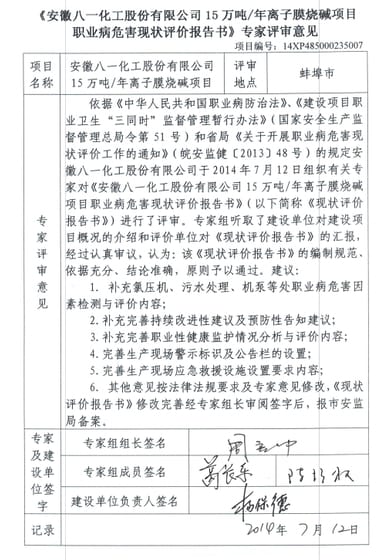 《安徽八一化工股份有限公司 15 万吨/年离子膜烧碱项目
职业病危害现状评价报告书》专家评审意见
项目编号：14XP485000235007
项目名称
安徽八一化工股份有限公司
15 万吨/年离子膜烧碱项目
评审地点
蚌埠市
专家评审意见
依据《中华人民共和国职业病防治法》、《建设项目职
业卫生“三同时”监督管理暂行办法》（国家安全生产监
督管理总局令第 51 号）和省局《关于开展职业病危害现
状评价工作的通知》（皖安监健〔2013〕48 号）的规定安
徽八一化工股份有限公司于 2014 年 7 月 12 日组织有关专
家对《安徽八一化工股份有限公司 15 万吨/年离子膜烧碱
项目职业病危害现状评价报告书》（以下简称《现状评
价报告书》）进行了评审。专家组听取了建设单位对建设项
目概况的介绍和评价单位对《现状评价报告书》的汇报，
经过认真审议，认为：该《现状评价报告书》的编制规范、
依据充分、结论准确，原则予以通过。建议：
1. 补充氯压机、污水处理、机泵等处职业病危害因
素检测与评价内容；
2.补充完善持续改进性建议及预防性告知建议；
3.补充完善职业性健康监护情况分析与评价内容；
4.完善生产现场警示标识及公告栏的设置；
5.完善生产现场应急救援设施设置要求内容；
6. 其他意见按法律法规要求及专家意见修改，《现状
评价报告书》修改完善经专家组长审阅签字后，报市安监
局备案。
专家及建设单位签字
专家组组长签名
专家组成员签名
葛长东
建设单位负责人签名
杨保德
记录
2014年 7月12日